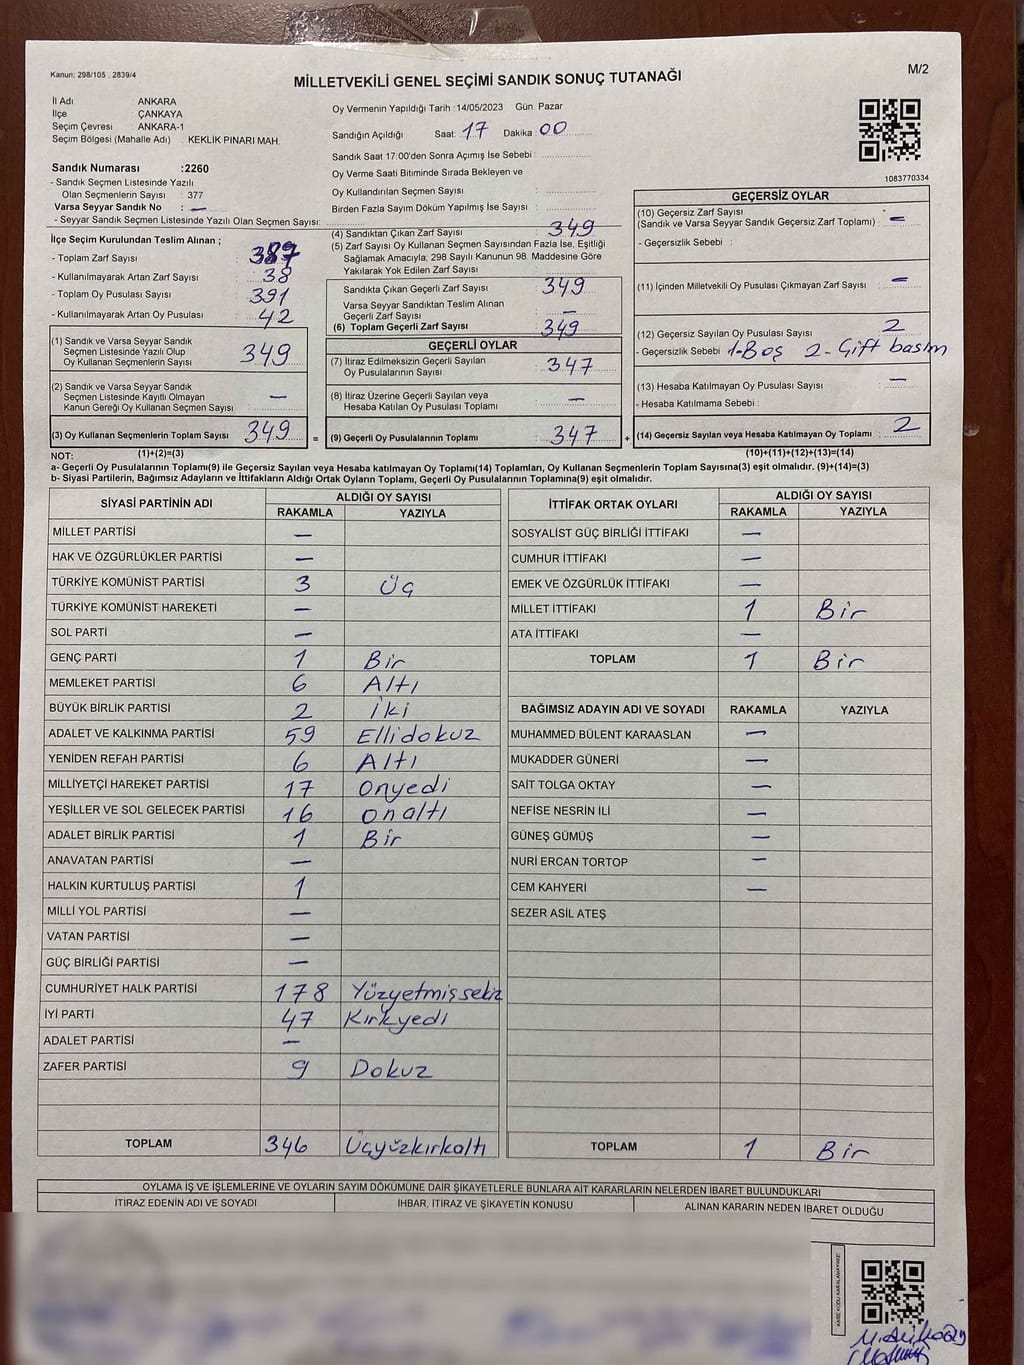 Kanun; 298/105 , 2839/4
MİLLETVEKİLİ GENEL SEÇİMİ SANDIK SONUÇ TUTANAĞI
M/2
İl Adı : ANKARA
İlçe : ÇANKAYA
Seçim Çevresi : ANKARA-1
Seçim Bölgesi (Mahalle Adı) : KEKLİK PINARI MAH.
Sandık Numarası :2260
- Sandık Seçmen Listesinde Yazılı
Olan Seçmenlerin Sayısı : 377
Varsa Seyyar Sandık No : —
- Seyyar Sandık Seçmen Listesinde Yazılı Olan Seçmen Sayısı:
Oy Vermenin Yapıldığı Tarih :14/05/2023 Gün. Pazar
Sandığın Açıldığı Saat: 17 Dakika : 00
Sandık Saat 17:00'den Sonra Açımış İse Sebebi :
Oy Verme Saati Bitiminde Sırada Bekleyen ve
Oy Kullandırılan Seçmen Sayısı :
Birden Fazla Sayım Döküm Yapılmış İse Sayısı :
1083770334
İlçe Seçim Kurulundan Teslim Alınan ;
- Toplam Zarf Sayısı : 387
- Kullanılmayarak Artan Zarf Sayısı : 38
- Toplam Oy Pusulası Sayısı : 391
- Kullanılmayarak Artan Oy Pusulası : 42
(1) Sandık ve Varsa Seyyar Sandık
Seçmen Listesinde Yazılı Olup
Oy Kullanan Seçmenlerin Sayısı : 349
(2) Sandık ve Varsa Seyyar Sandık
Seçmen Listesinde Kayıtlı Olmayan
Kanun Gereği Oy Kullanan Seçmen Sayısı : —
(3) Oy Kullanan Seçmenlerin Toplam Sayısı : 349 =
(4) Sandıktan Çıkan Zarf Sayısı : 349
(5) Zarf Sayısı Oy Kullanan Seçmen Sayısından Fazla İse, Eşitliği
Sağlamak Amacıyla; 298 Sayılı Kanunun 98. Maddesine Göre
Yakılarak Yok Edilen Zarf Sayısı :
Sandıkta Çıkan Geçerli Zarf Sayısı : 349
Varsa Seyyar Sandıktan Teslim Alınan
Geçerli Zarf Sayısı : —
(6) Toplam Geçerli Zarf Sayısı : 349
GEÇERLİ OYLAR
(7) İtiraz Edilmeksizin Geçerli Sayılan
Oy Pusulalarının Sayısı : 347
(8) İtiraz Üzerine Geçerli Sayılan veya
Hesaba Katılan Oy Pusulası Toplamı : —
(9) Geçerli Oy Pusulalarının Toplamı : 347 +
GEÇERSİZ OYLAR
(10) Geçersiz Zarf Sayısı
(Sandık ve Varsa Seyyar Sandık Geçersiz Zarf Toplamı) : —
- Geçersizlik Sebebi :
(11) İçinden Milletvekili Oy Pusulası Çıkmayan Zarf Sayısı : —
(12) Geçersiz Sayılan Oy Pusulası Sayısı : 2
- Geçersizlik Sebebi : 1-Boş 2- Çift basım
(13) Hesaba Katılmayan Oy Pusulası Sayısı : —
- Hesaba Katılmama Sebebi :
(14) Geçersiz Sayılan veya Hesaba Katılmayan Oy Toplamı : 2
NOT: (1)+(2)=(3) (10)+(11)+(12)+(13)=(14)
a- Geçerli Oy Pusulalarının Toplamı(9) ile Geçersiz Sayılan veya Hesaba katılmayan Oy Toplamı(14) Toplamları, Oy Kullanan Seçmenlerin Toplam Sayısına(3) eşit olmalıdır. (9)+(14)=(3)
b- Siyasi Partilerin, Bağımsız Adayların ve İttifakların Aldığı Ortak Oyların Toplamı, Geçerli Oy Pusulalarının Toplamına(9) eşit olmalıdır.
SİYASİ PARTİNİN ADI ALDIĞI OY SAYISI
RAKAMLA YAZIYLA
MİLLET PARTİSİ —
HAK VE ÖZGÜRLÜKLER PARTİSİ —
TÜRKİYE KOMÜNİST PARTİSİ 3 Üç
TÜRKİYE KOMÜNİST HAREKETİ —
SOL PARTİ —
GENÇ PARTİ 1 Bir
MEMLEKET PARTİSİ 6 Altı
BÜYÜK BİRLİK PARTİSİ 2 İki
ADALET VE KALKINMA PARTİSİ 59 Ellidokuz
YENİDEN REFAH PARTİSİ 6 Altı
MİLLİYETÇİ HAREKET PARTİSİ 17 Onyedi
YEŞİLLER VE SOL GELECEK PARTİSİ 16 onaltı
ADALET BİRLİK PARTİSİ 1 Bir
ANAVATAN PARTİSİ —
HALKIN KURTULUŞ PARTİSİ 1
MİLLİ YOL PARTİSİ —
VATAN PARTİSİ —
GÜÇ BİRLİĞİ PARTİSİ —
CUMHURİYET HALK PARTİSİ 178 Yüzyetmişsekiz
İYİ PARTİ 47 Kırkyedi
ADALET PARTİSİ —
ZAFER PARTİSİ 9 Dokuz
TOPLAM 346 Üçyüzkırkaltı
İTTİFAK ORTAK OYLARI ALDIĞI OY SAYISI
RAKAMLA YAZIYLA
SOSYALİST GÜÇ BİRLİĞİ İTTİFAKI —
CUMHUR İTTİFAKI —
EMEK VE ÖZGÜRLÜK İTTİFAKI —
MİLLET İTTİFAKI 1 Bir
ATA İTTİFAKI —
TOPLAM 1 Bir
BAĞIMSIZ ADAYIN ADI VE SOYADI RAKAMLA YAZIYLA
MUHAMMED BÜLENT KARAASLAN —
MUKADDER GÜNERİ —
SAİT TOLGA OKTAY —
NEFİSE NESRİN İLİ —
GÜNEŞ GÜMÜŞ —
NURİ ERCAN TORTOP —
CEM KAHYERİ —
SEZER ASİL ATEŞ
TOPLAM 1 Bir
OYLAMA İŞ VE İŞLEMLERİNE VE OYLARIN SAYIM DÖKÜMÜNE DAİR ŞİKAYETLERLE BUNLARA AİT KARARLARIN NELERDEN İBARET BULUNDUKLARI
İTİRAZ EDENİN ADI VE SOYADI İHBAR, İTİRAZ VE ŞİKAYETİN KONUSU ALINAN KARARIN NEDEN İBARET OLDUĞU